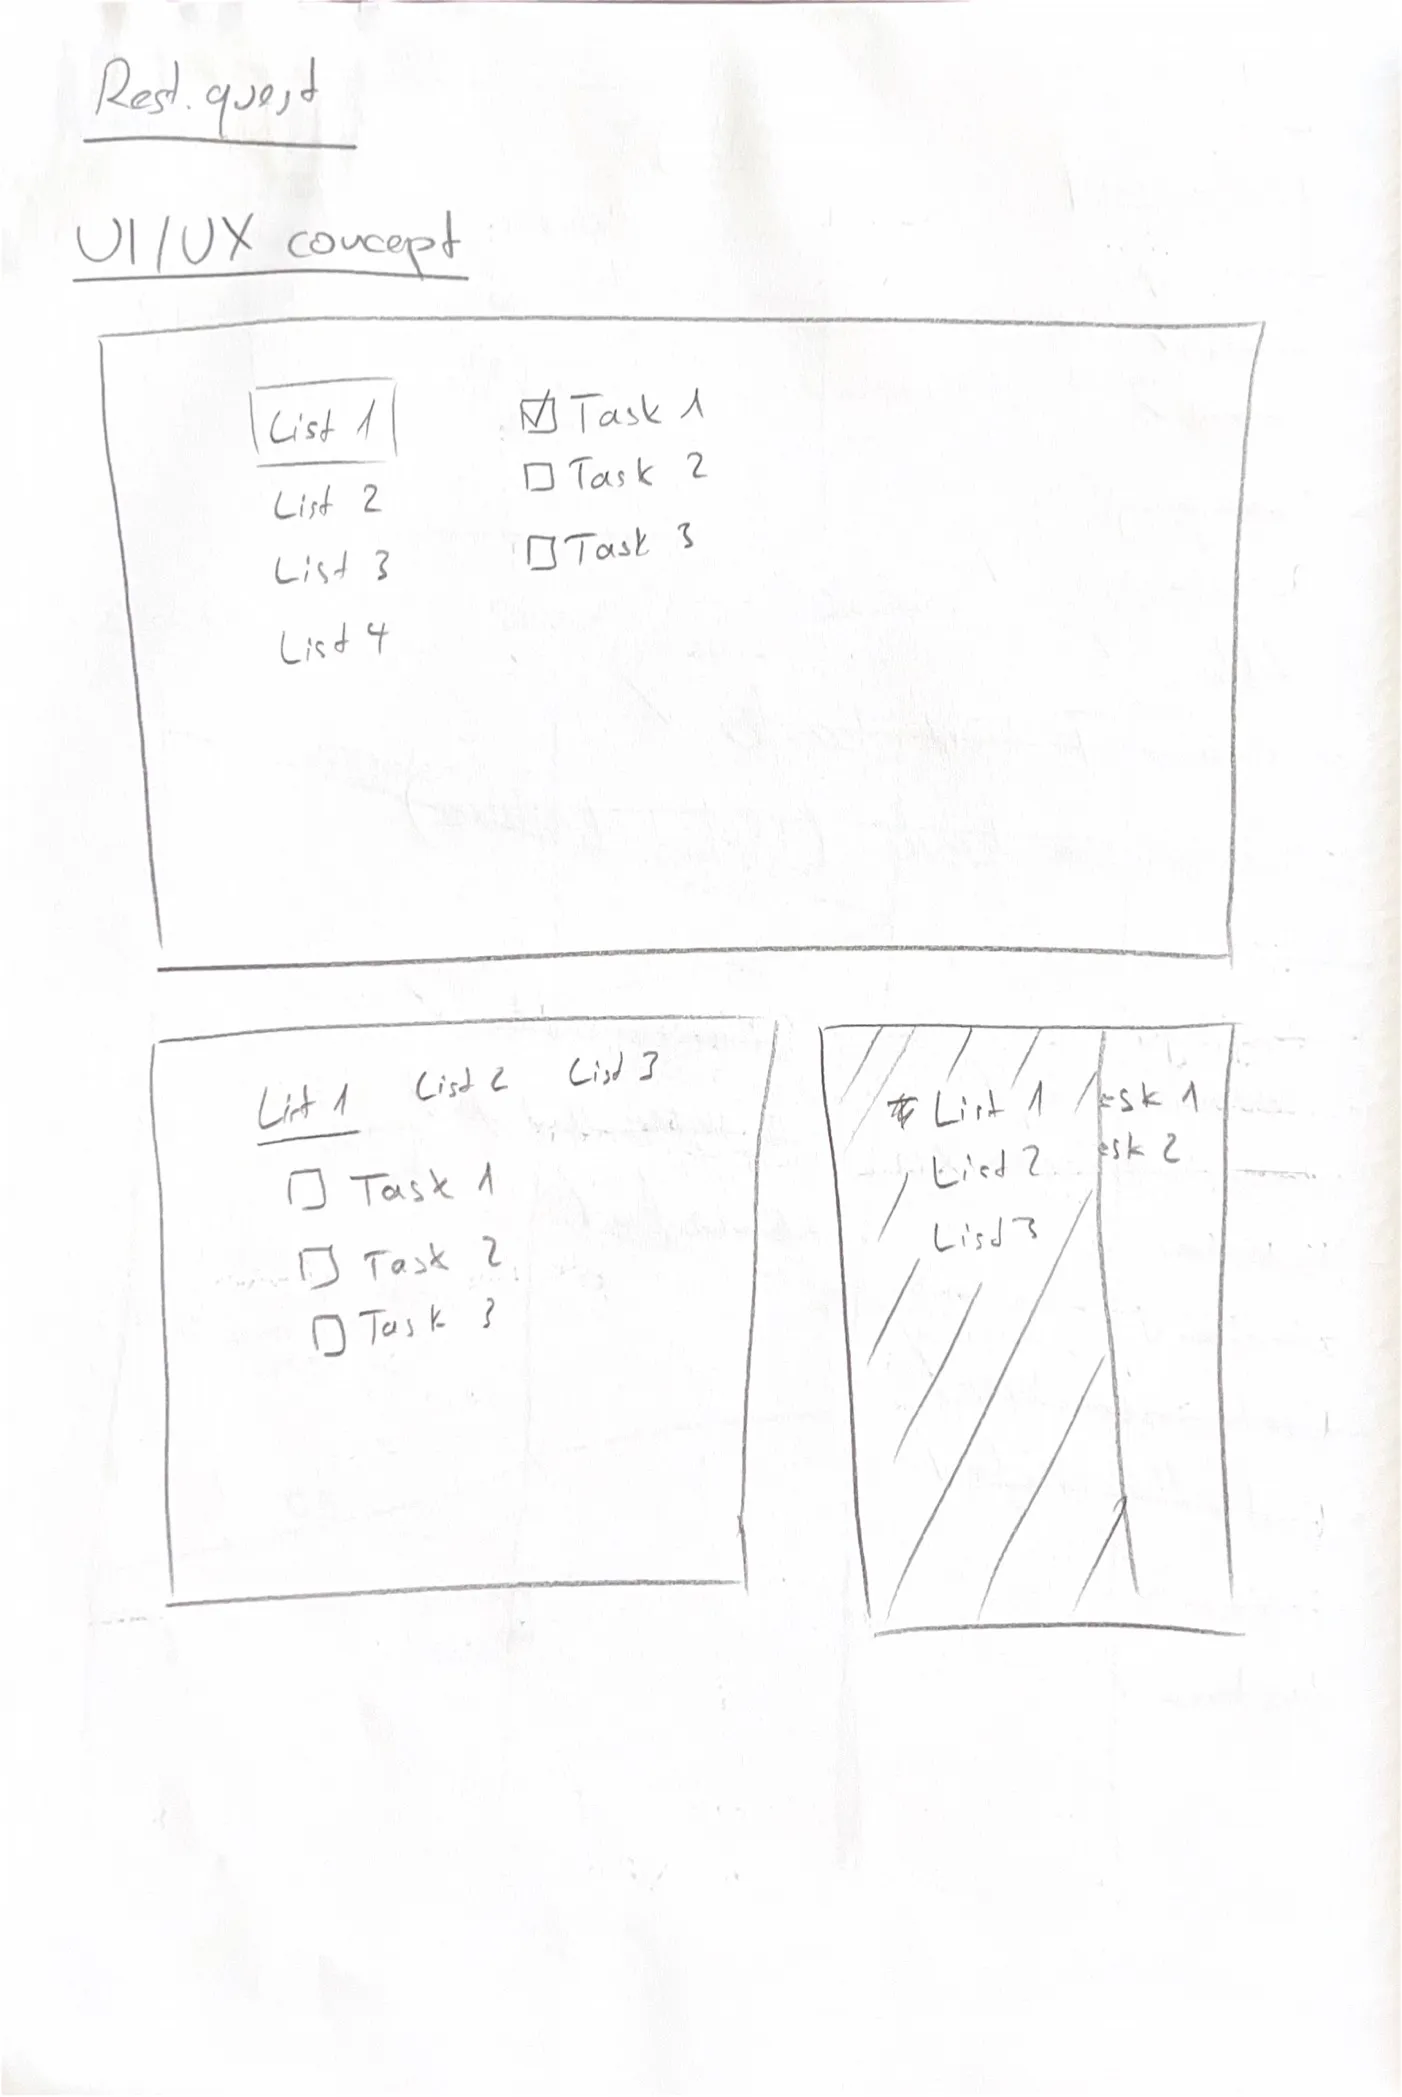 Rest.quest
UI/UX concept
List 1
List 2
List 3
List 4
Task 1
Task 2
Task 3
List 1 List 2 List 3
Task 1
Task 2
Task 3
List 1
List 2
List 3
esk 1
esk 2